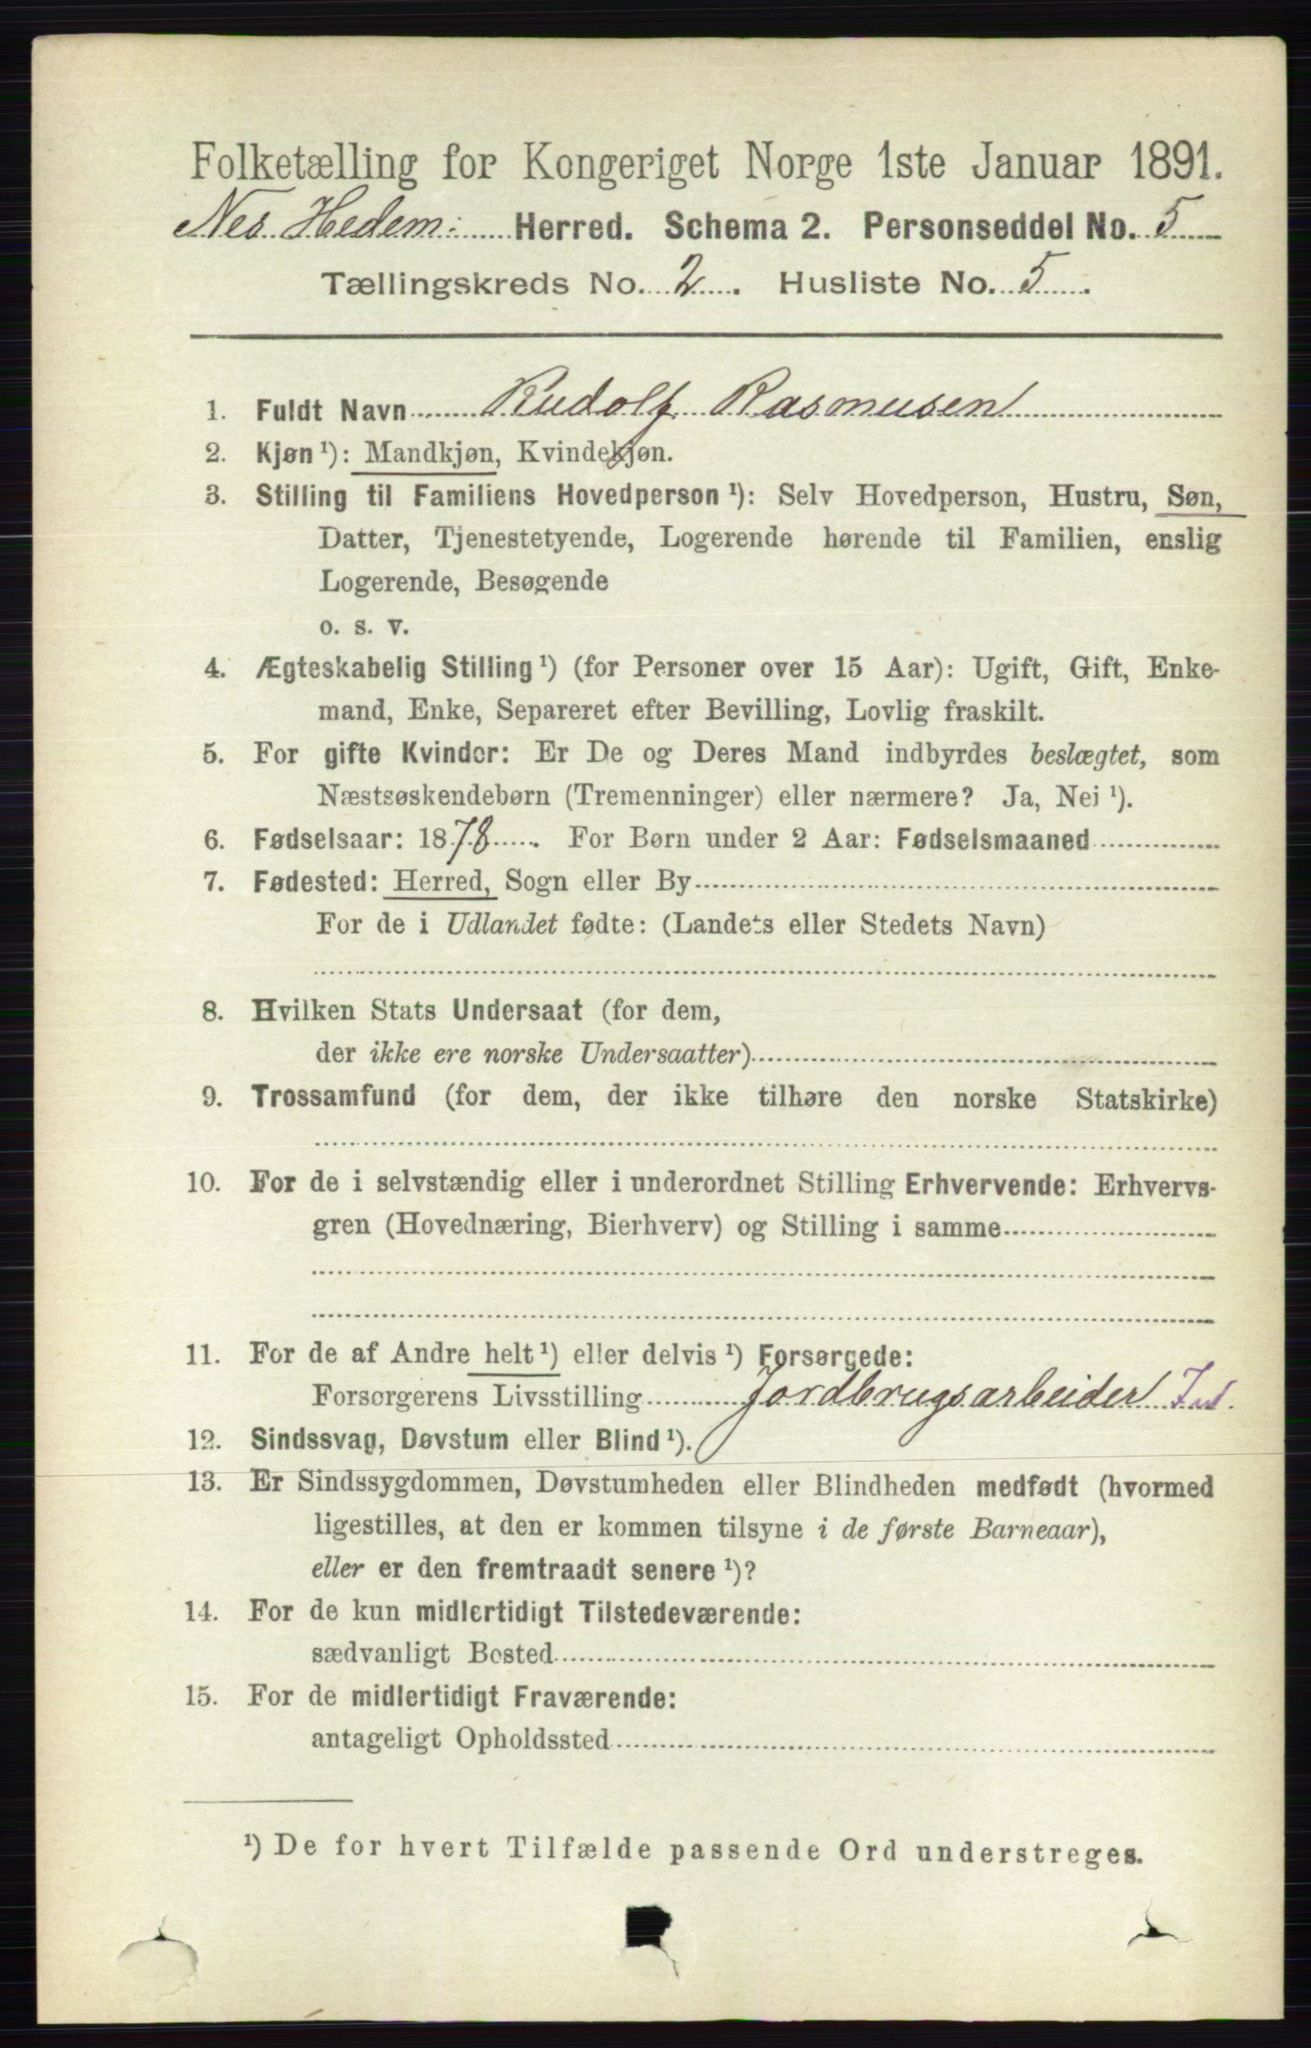 Folketælling for Kongeriget Norge 1ste Januar 1891.
Nes Hedem: Herred. Schema 2. Personseddel No. 5
Tællingskreds No. 2. Husliste No. 5.
1. Fuldt Navn Rudolf Rasmusen
2. Kjøn ¹): Mandkjøn, Kvindekjøn.
3. Stilling til Familiens Hovedperson ¹): Selv Hovedperson, Hustru, Søn,
Datter, Tjenestetyende, Logerende hørende til Familien, enslig
Logerende, Besøgende
o. s. v.
4. Ægteskabelig Stilling ¹) (for Personer over 15 Aar): Ugift, Gift, Enke-
mand, Enke, Separeret efter Bevilling, Lovlig fraskilt.
5. For gifte Kvinder: Er De og Deres Mand indbyrdes beslægtet, som
Næstsøskendebørn (Tremenninger) eller nærmere? Ja, Nei ¹).
6. Fødselsaar: 1878. For Børn under 2 Aar: Fødselsmaaned
7. Fødested: Herred, Sogn eller By
For de i Udlandet fødte: (Landets eller Stedets Navn)
8. Hvilken Stats Undersaat (for dem,
der ikke ere norske Undersaatter)
9. Trossamfund (for dem, der ikke tilhøre den norske Statskirke)
10. For de i selvstændig eller i underordnet Stilling Erhvervende: Erhvervs-
gren (Hovednæring, Bierhverv) og Stilling i samme
11. For de af Andre helt ¹) eller delvis ¹) Forsørgede:
Forsørgerens Livsstilling Jordbrugsarbeider
12. Sindssvag, Døvstum eller Blind ¹).
13. Er Sindssygdommen, Døvstumheden eller Blindheden medfødt (hvormed
ligestilles, at den er kommen tilsyne i de første Barneaar),
eller er den fremtraadt senere ¹)?
14. For de kun midlertidigt Tilstedeværende:
sædvanligt Bosted
15. For de midlertidigt Fraværende:
antageligt Opholdssted
¹) De for hvert Tilfælde passende Ord understreges.